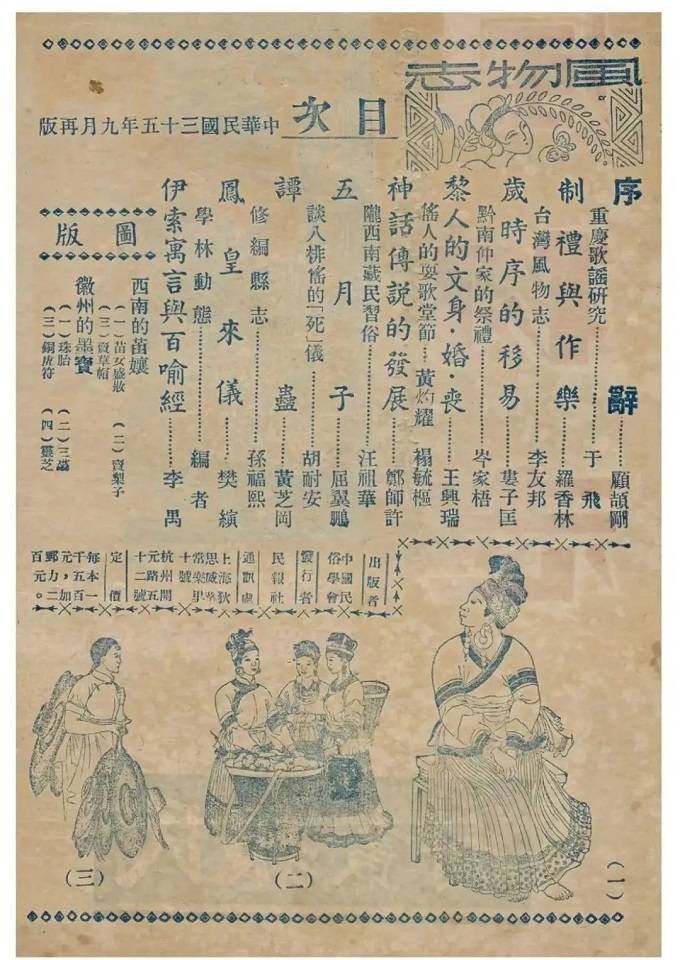 風物志
目次
中華民國三十五年九月再版
序辭……顧頡剛
重慶歌謠研究……于飛
制禮與作樂……羅香林
台灣風物志……李友邦
歲時序的移易……婁子匡
黔南仲家的祭禮……岑家梧
黎人的文身·婚·喪……王興瑞
傜人的耍歌堂節…黃灼耀 禤毓樞
神話傳說的發展……鄭師許
隴西南藏民習俗……汪祖華
五月子……屈翼鵬
談八排傜的「死」儀……胡耐安
譚蠱……黃芝岡
修編縣志……孫福熙
鳳皇來儀……樊縯
學林動態……編者
伊索寓言與百喻經……李禺
圖版
西南的苗孃
(一)苗女盛妝 (二)賣梨子
(三)賣草帽
徽州的墨寶
(一)珠胎 (二)三
(三)銅虎符 (四)靈芝
出版者
中國民俗學會
發行者
民報社
通訊處
上海狄思威路常樂里十號
杭州開元路五十二號
定價
每本一千五百元,郵力加二百元。
(一)
(二)
(三)